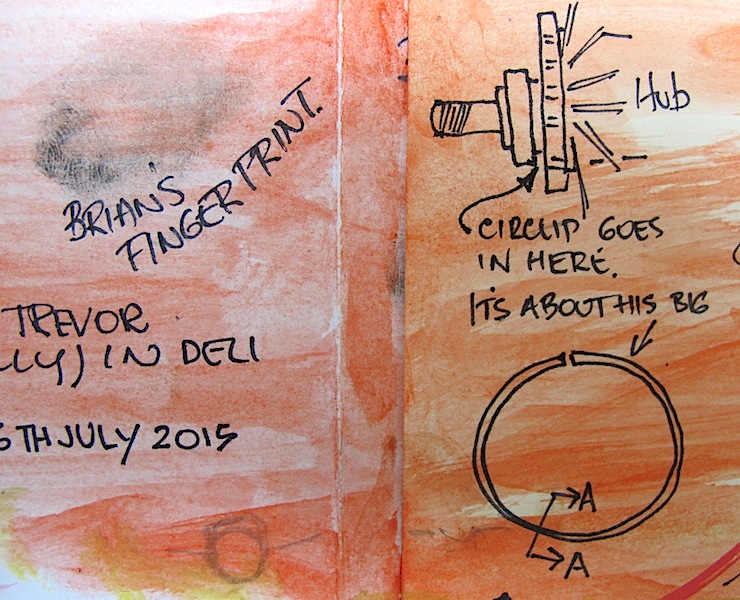 BRIAN'S
FINGERPRINT.
TREVOR
LLY) IN DELI
6TH JULY 2015
Hub
CIRCLIP GOES
IN HERE.
ITS ABOUT HIS BIG
A
A